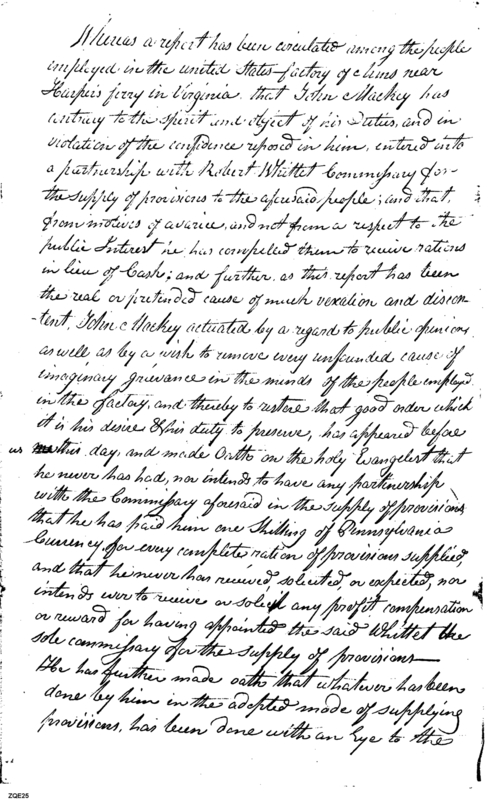 Whereas a report has been circulated among the people
employed in the united States factory of Arms near
Harpers ferry in Virginia that John Mackey has
contrary to the spirit and object of his Duties, and in
violation of the confidence reposed in him, entered into
a partnership with Robert Whittet Commissary for
the supply of provisions to the aforesaid people; and that,
from motives of avarice, and not from a respect to the
public Interest he has compelled them to receive rations
in lieu of Cash; and further, as this report has been
the real or pretended cause of much vexation and discon-
tent, John Mackey actuated by a regard to public opinion,
as well as by a wish to remove every unfounded cause of
imaginary grievance in the minds of the people employed
in the factory, and thereby to restore that good order which
it is his desire & his duty to preserve, has appeared before
us this day, and made Oath on the holy Evangelist that
he never has had, nor intends to have any partnership
with the Commissary aforesaid in the supply of provisions
that he has paid him one Shilling of Pennsylvania
Currency for every complete ration of provisions supplied,
and that he never has received solicited or expected, nor
intends ever to receive or solicit any profit compensation
or reward for having appointed the said Whittet the
sole commissary for the supply of provisions—
He has further made oath that whatever has been
done by him in the adopted mode of supplying
provisions, has been done with an Eye to the
ZQE25